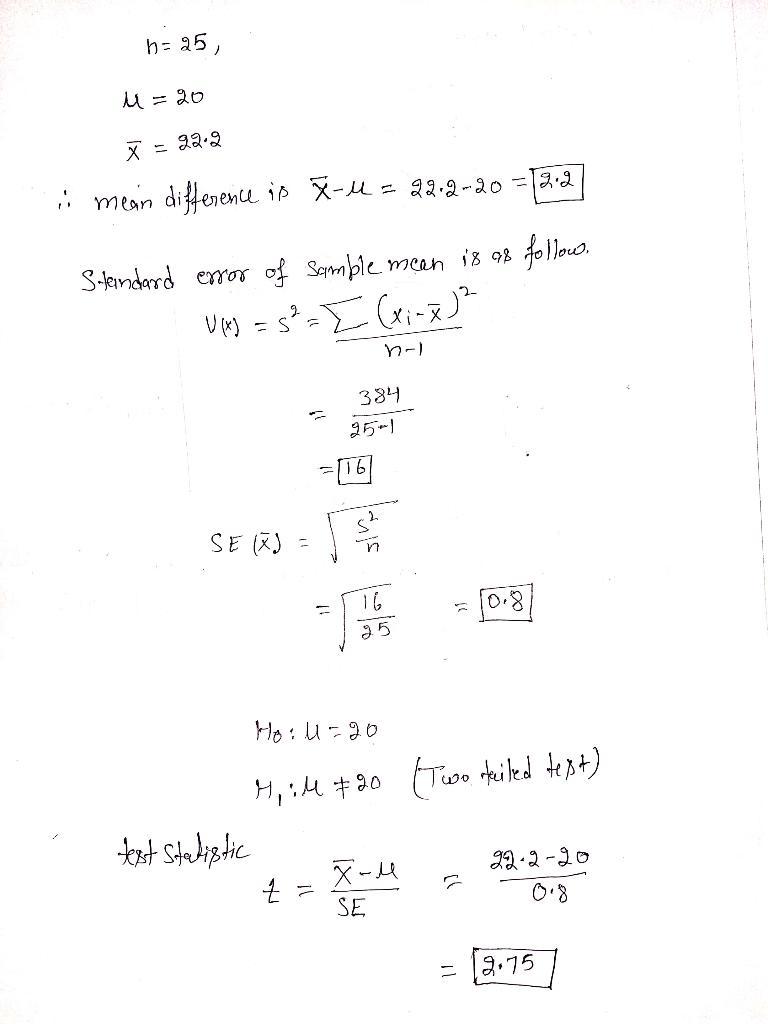 n = 25,
μ = 20
x̄ = 22.2
∴ mean difference is x̄-μ = 22.2-20 = 2.2
Standard error of sample mean is as follow.
V(x) = s² = Σ (xᵢ-x̄)² / n-1
= 384 / 25-1
= 16
SE (x̄) = √(s²/n)
= √(16/25) = 0.8
H₀ : μ = 20
H₁ : μ ≠ 20 (Two tailed test)
test statistic
t = x̄-μ / SE = 22.2-20 / 0.8
= 2.75